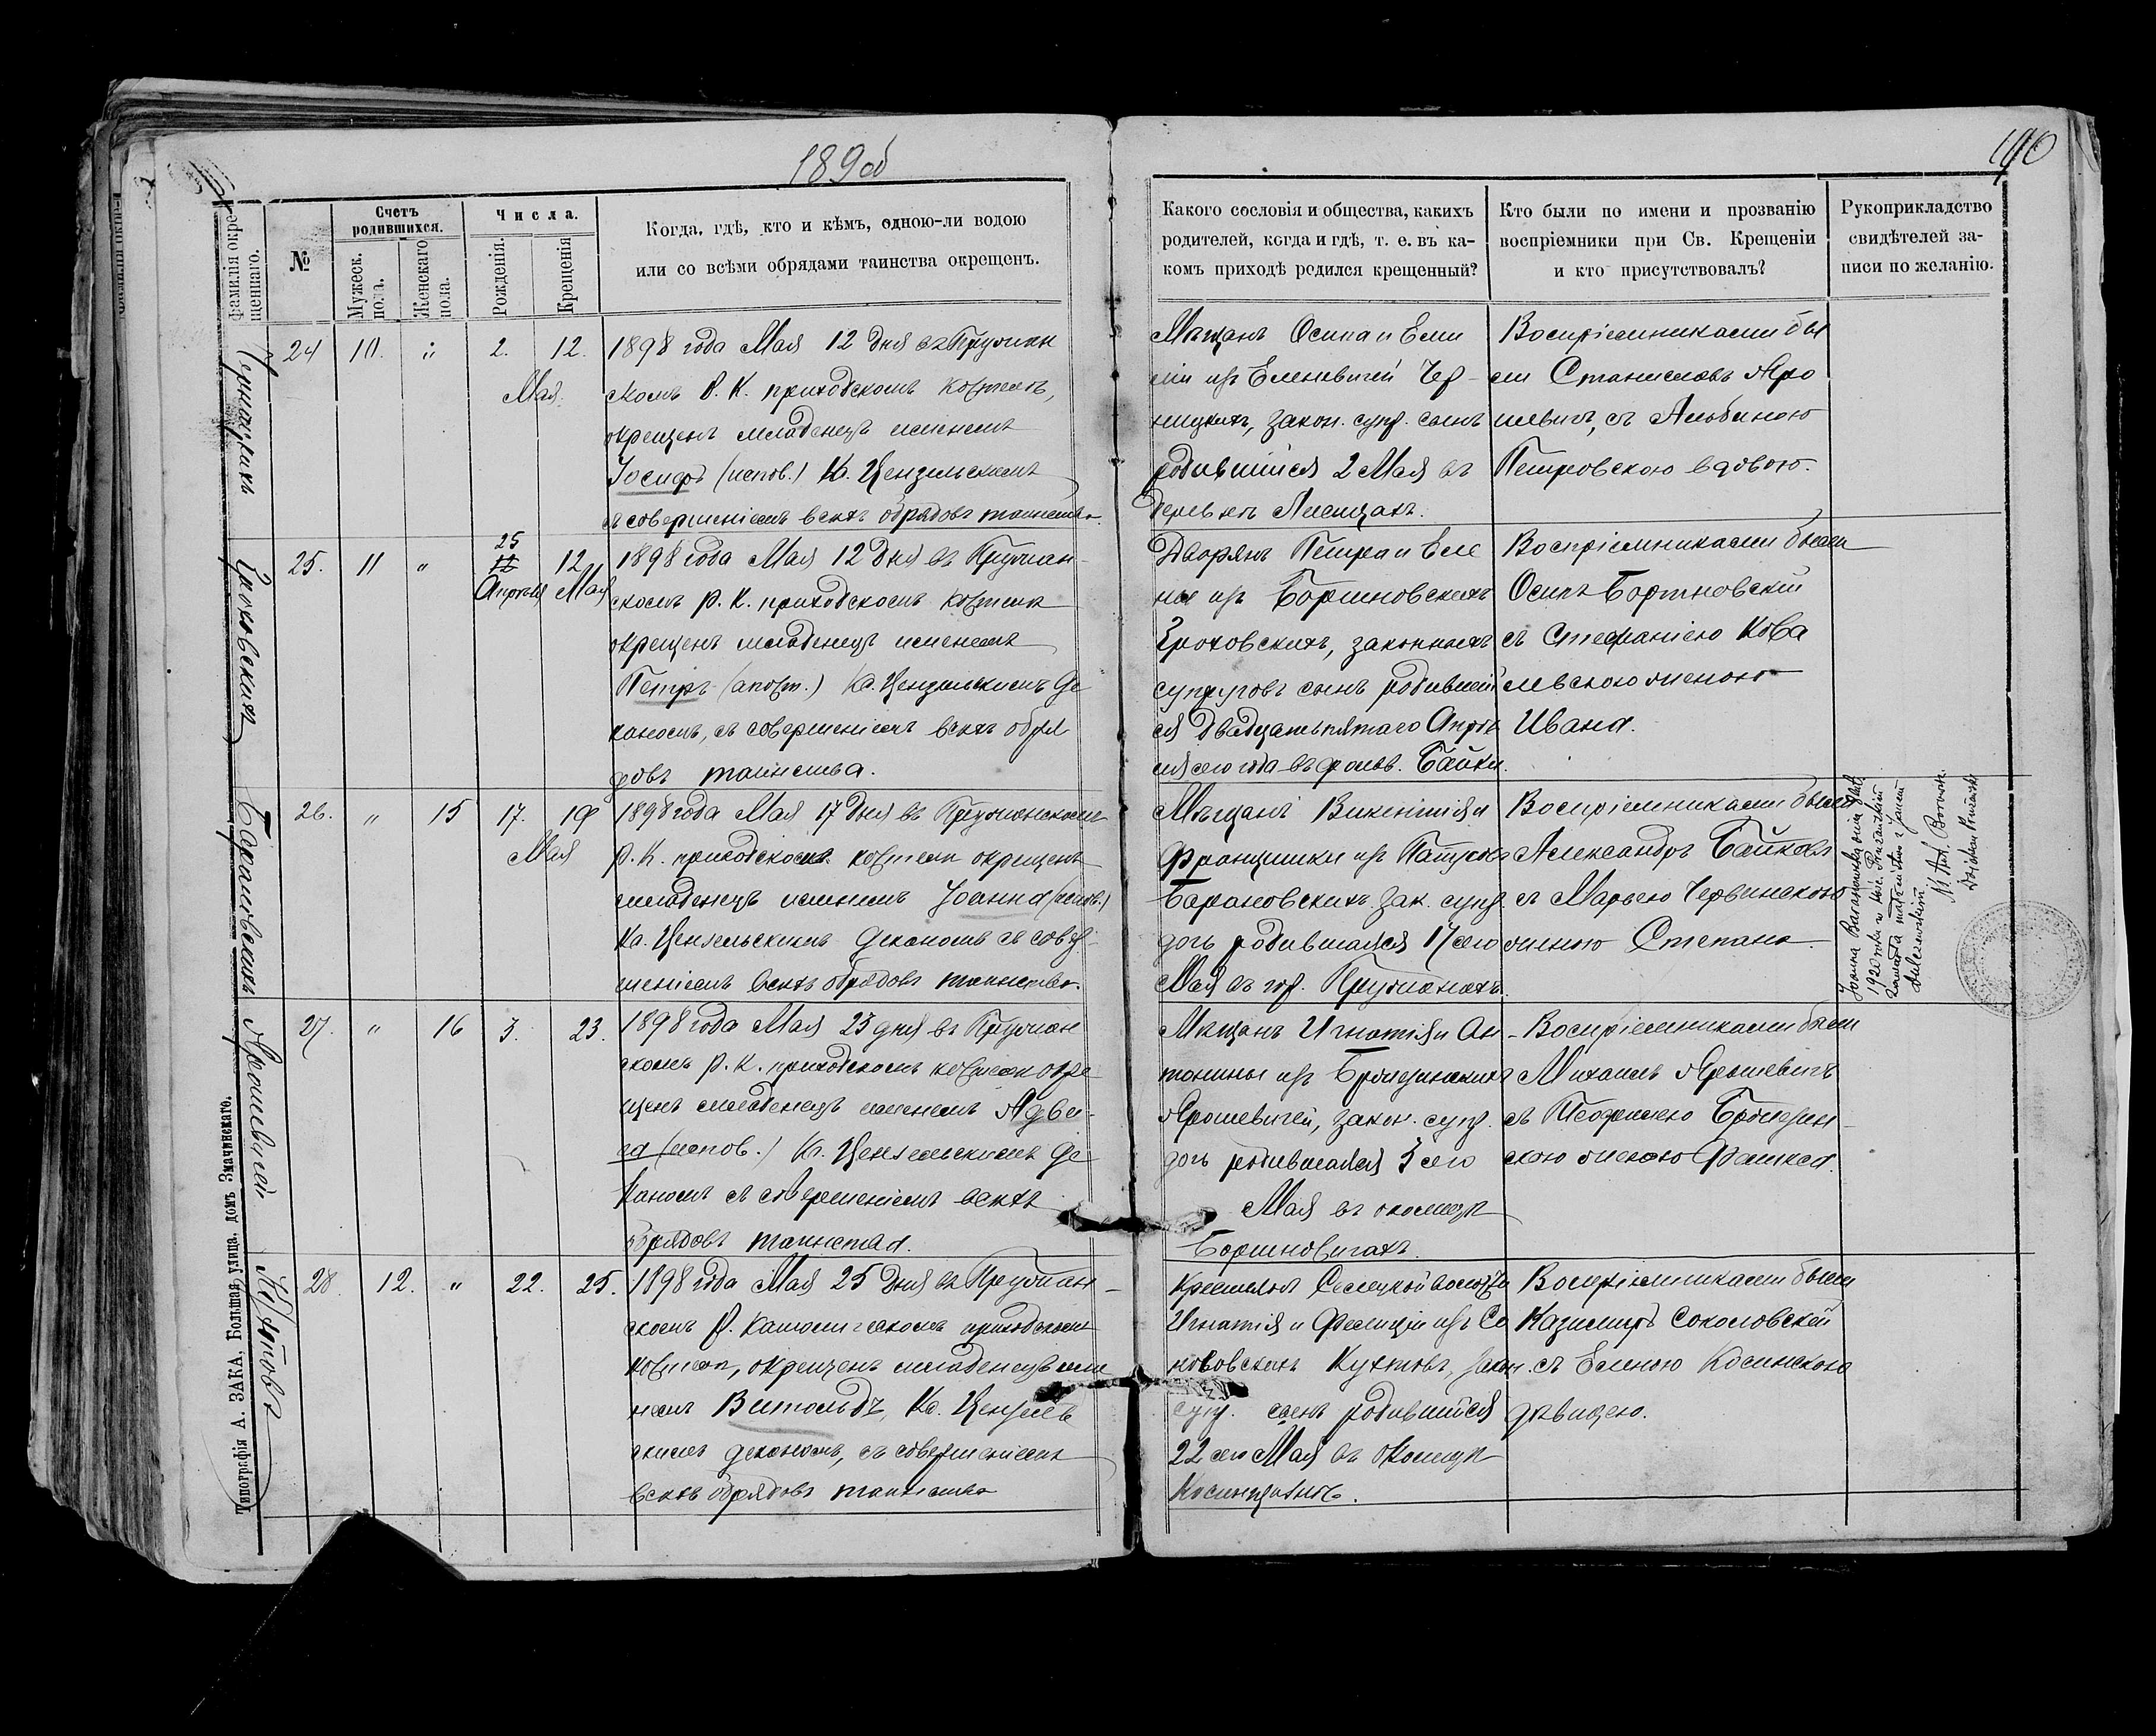 189об
190
Фамилія окре-
щеннаго.
№
Счетъ
родившихся.
Мужеск.
пола.
Женскаго
пола.
Числа.
Рожденія.
Крещенія
Когда, гдѣ, кто и кѣмъ, одною-ли водою
или со всѣми обрядами таинства окрещенъ.
Какого сословія и общества, какихъ
родителей, когда и гдѣ, т. е. въ ка-
комъ приходѣ родился крещенный?
Кто были по имени и прозванію
воспріемники при Св. Крещеніи
и кто присутствовалъ?
Рукоприкладство
свидѣтелей за-
писи по желанію.
Черницкихъ
24 10. " 2. 12.
Мая.
1898 года Мая 12 дня въ Пружан
скомъ Р. К. приходскомъ костелѣ,
окрещенъ младенецъ именемъ
Іосифъ (испов.) Кс. Цензельскимъ
съ совершеніемъ всѣхъ обрядовъ таинства.
Мѣщанъ Осипа и Еми
ліи изъ Еленевичей Чер-
ницкихъ, закон. супр. сынъ
родившійся 2 Мая въ
деревнѣ
Воспріемниками бы
ли Станиславъ Яро
шевичъ, съ Альбиною
Петровскою вдовою.
Гроховскихъ
25. 11 "
25
12
Апрѣля Мая
1898 года Мая 12 дня въ Пружан-
скомъ Р. К. приходскомъ костелѣ
окрещенъ младенецъ именемъ
Петръ (апост.) Кс. Цензельскимъ Де
каномъ, съ совершеніемъ всѣхъ обря
довъ таинства.
Дворянъ Петра и Еле
ны изъ Бортновскихъ
Гроховскихъ, законныхъ
супруговъ сынъ родившій
ся двадцать пятаго Апрѣ
ля сего года въ фольв. Байки.
Воспріемниками были
Осипъ Бортновскій
съ Стефаніею Кова
левскою женою
Ивана.
Барановскихъ
26. " 15 17. 19
Мая
1898 года Мая 17 дня въ Пружанскомъ
Р. К. приходскомъ костелѣ окрещенъ
младенецъ именемъ Іоанна (испов.)
Кс. Цензельскимъ Деканомъ съ совер-
шеніемъ всѣхъ обрядовъ таинства.
Мѣщанъ Викентія и
Францишки изъ
Барановскихъ зак. супр.
дочь родившаяся 17 сего
Мая въ гор. Пружанахъ.
Воспріемниками были
Александръ Байковъ
съ Марьею Червинскою
женою Степана.
Joanna Baranowska
1920 roku w kość. Prużańskim
zawarła małżeństwo z Janem
Ks Ant.
Dziekan Prużański
Ярошевичей
27. " 16 3. 23.
1898 года Мая 23 дня въ Пружан
скомъ Р. К. приходскомъ костелѣ окре
щенъ младенецъ именемъ Ядви-
га (испов.) Кс. Цензельскимъ Де
каномъ съ совершеніемъ всѣхъ
обрядовъ таинства.
Мѣщанъ Игнатія и Ан-
тонины изъ
Ярошевичей, закон. супр.
дочь родившаяся 3 сего
Мая въ околицѣ
Бортновичахъ.
Воспріемниками были
Михаилъ Ярошевичъ
съ Теофилею
скою женою
Кухтовъ
28. 12. " 22. 25.
1898 года Мая 25 дня въ Пружан-
скомъ Р. Католическомъ приходскомъ
костелѣ, окрещенъ младенецъ име
немъ Витольдъ, Кс. Цензель
скимъ деканомъ, съ совершеніемъ
всѣхъ обрядовъ таинства
Крестьянъ Селецкой волости
Игнатія и Фелиціи изъ Со
коловскихъ Кухтовъ, закон.
супр. сынъ родившійся
22 сего Мая въ околицѣ
Воспріемниками были
Казимиръ Соколовскій
съ Еленою Косинскою
дѣвицею.
Типографія А. ЗАКА, Большая улица. домъ Змачинскаго.